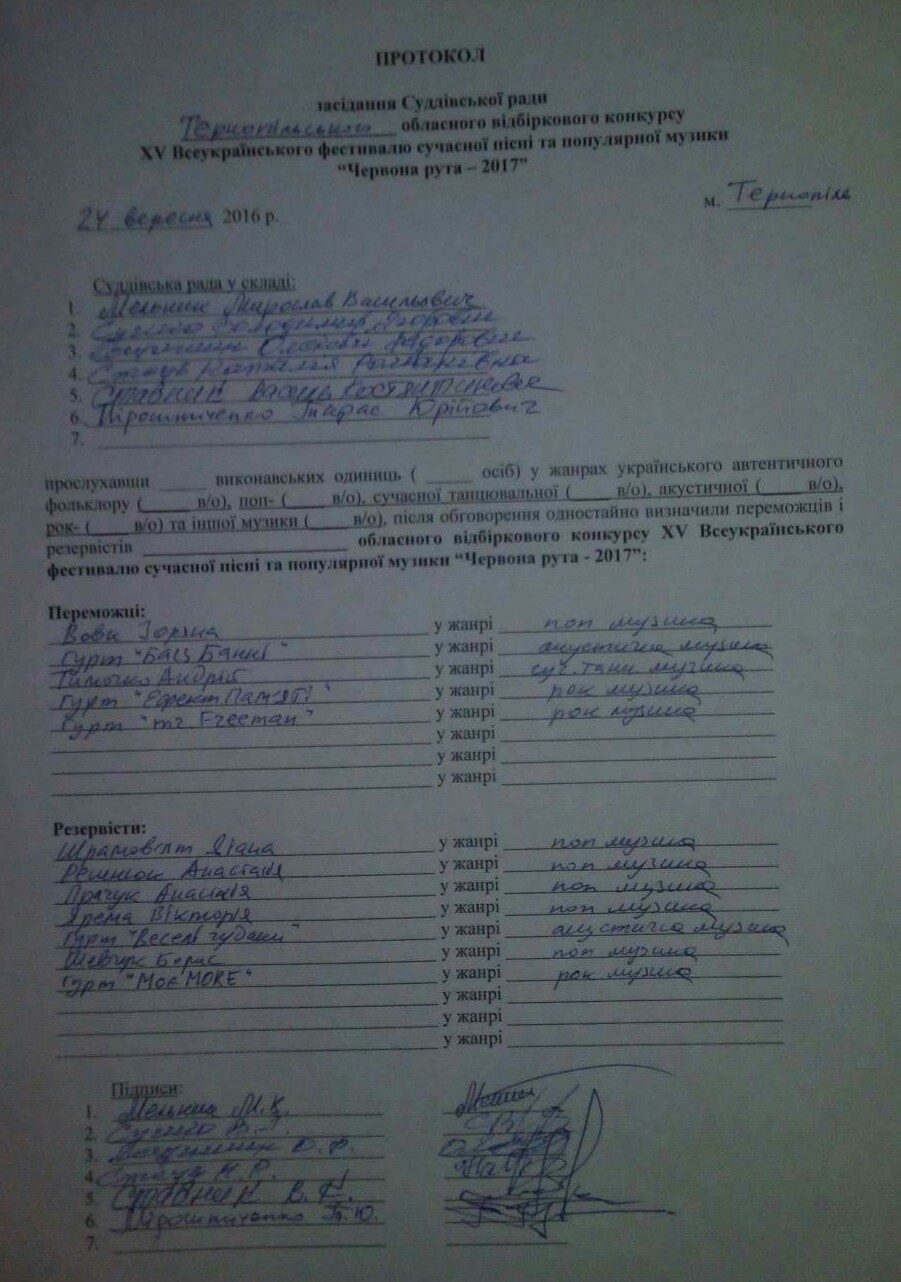 ПРОТОКОЛ
засідання Суддівської ради
Тернопільського обласного відбіркового конкурсу
XV Всеукраїнського фестивалю сучасної пісні та популярної музики
“Червона рута – 2017”
м. Тернопіль
24 вересня 2016 р.
Суддівська рада у складі:
1. Мельник Мирослав Васильович
2. Володимир Ігорович
3.
4. Стощ Наталія Романівна
5. Василь Костянтинович
6. Мірошниченко Тарас Юрійович
7.
прослухавши _____ виконавських одиниць ( _____ осіб) у жанрах українського автентичного
фольклору (_____ в/о), поп- (____ в/о), сучасної танцювальної (____ в/о), акустичної (____ в/о),
рок- (____ в/о) та іншої музики (____ в/о), після обговорення одностайно визначили переможців і
резервістів ____________________ обласного відбіркового конкурсу XV Всеукраїнського
фестивалю сучасної пісні та популярної музики “Червона рута - 2017”:
Переможці:
Вовк Іоряна у жанрі поп музика
гурт "Бакс Банні" у жанрі акустична музика
Тимочко Андрій у жанрі суч. танц музика
гурт "Ефект Пам'яті" у жанрі рок музика
гурт "mr Freeman" у жанрі рок музика
у жанрі
у жанрі
у жанрі
Резервісти:
Діана у жанрі поп музика
Анастасія у жанрі поп музика
Анастасія у жанрі поп музика
Ярема Вікторія у жанрі поп музика
гурт "Веселі чудаки" у жанрі акустична музика
Шевчук Борис у жанрі поп музика
гурт "Моє МОRЕ" у жанрі рок музика
у жанрі
у жанрі
у жанрі
Підписи:
1. Мельник М.
2. В.І.
3.
4. Н.Р.
5. В.К.
6. Мірошниченко Т.Ю.
7.